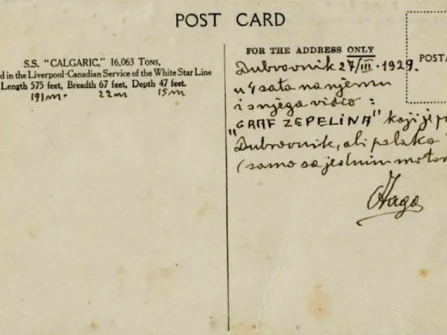 POST CARD
S.S. "CALGARIC," 16,063 TONS,
d in the Liverpool-Canadian Service of the White Star Line
Length 575 feet, Breadth 67 feet, Depth 47 feet.
191m. 22m 15m
FOR THE ADDRESS ONLY
POSTA
Dubrovnik 27/III. 1929.
u 4 sata na njemu
i s njega video :
"GRAF ZEPELINA" koji je p
Dubrovnik, ali polako
(samo sa jednim motor